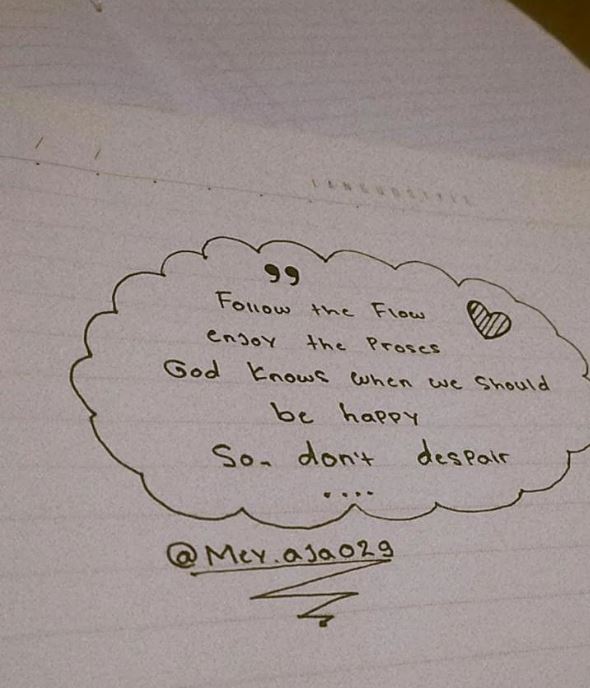 ”
Follow the Flow
enjoy the Proses
God knows when we should
be happy
So, don't despair
....
@Mey.aja029